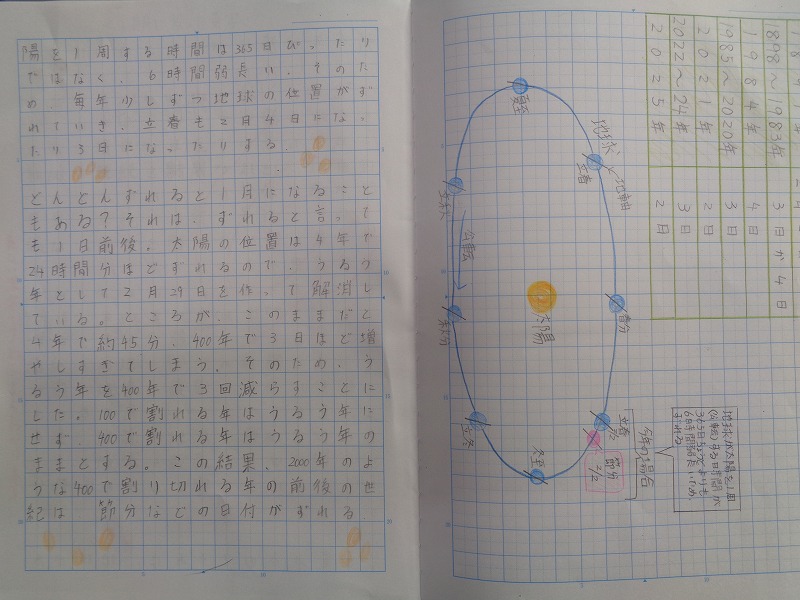 陽を1周する時間は365日ぴったり
ではなく、6時間弱長い。そのた
め、毎年少しずつ地球の位置がず
れていき、立春も2月4日になっ
たり3日になったりする。
どんどんずれると1月になること
もある?それは、ずれると言って
も1日前後。太陽の位置は4年で
24時間分ほどずれるので、うるう
年として2月29日を作って解消し
ている。ところが、このままだと
4年で約45分、400年で3日ほど増
やしすぎてしまう。そのため、う
るう年を400年で3回減らすことに
した。100で割れる年はうるう年に
せず、400で割れる年はうるう年の
ままとする。この結果、2000年のよ
うな400で割り切れる年の前後の世
紀は、節分などの日付がずれる
1898~1983年 3日か4日
1984年 4日
1985~2020年 3日
2021年 2日
2022~24年 3日
2025年 2日
夏至
地球
地軸
公転
太陽
春分
立春
節分
2/2
冬至
立冬
地球が太陽を1周